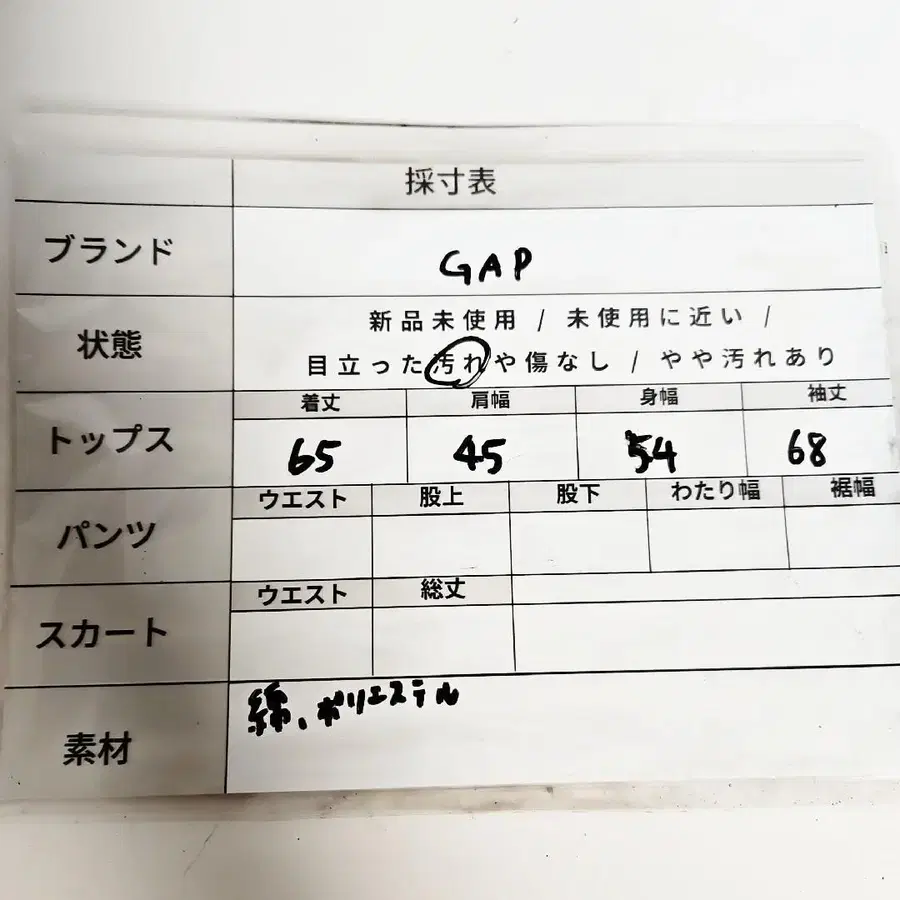 採寸表
ブランド GAP
状態 新品未使用 / 未使用に近い /
目立った汚れや傷なし / やや汚れあり
着丈 肩幅 身幅 袖丈
トップス 65 45 54 68
ウエスト 股上 股下 わたり幅 裾幅
パンツ
ウエスト 総丈
スカート
綿、ポリエステル
素材